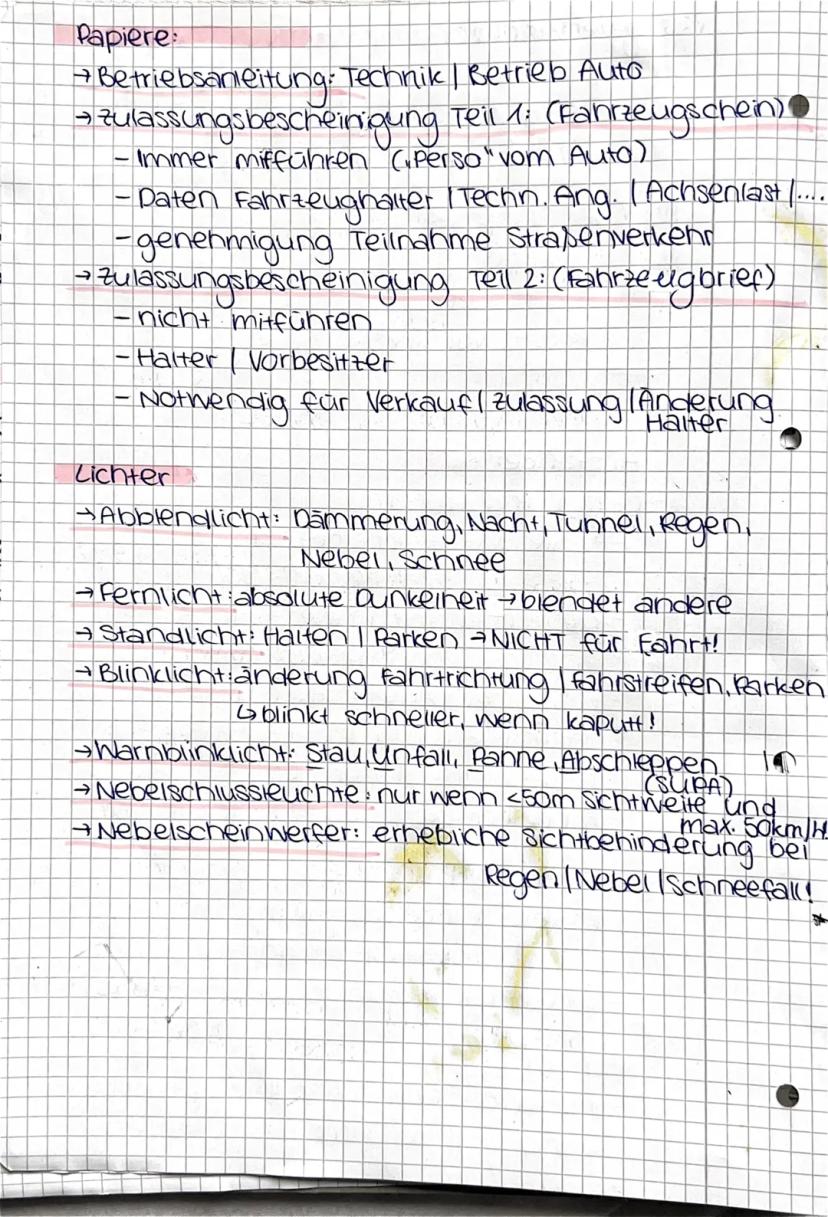 Papiere:
→ Betriebsanleitung: Technik | Betrieb Auto
→ Zulassungsbescheinigung Teil 1: (Fahrzeugschein)
- Immer mitführen („Perso" vom Auto)
- Daten Fahrzeughalter | Techn. Ang. | Achsenlast |....
- genehmigung Teilnahme Straßenverkehr
→ Zulassungsbescheinigung Teil 2: (Fahrzeugbrief)
- nicht mitführen
- Halter | Vorbesitzer
- Notwendig für Verkauf | Zulassung | Änderung
Halter
Lichter
→ Abblendlicht: Dämmerung, Nacht, Tunnel, Regen,
Nebel, Schnee
→ Fernlicht: absolute Dunkelheit → blendet andere
→ Standlicht: Halten | Parken → NICHT für Fahrt!
→ Blinklicht: änderung Fahrtrichtung | fahrstreifen, Parken
↳ blinkt schneller, wenn kaputt!
→ Warnblinklicht: Stau, Unfall, Panne, Abschleppen
(SUPA)
→ Nebelschlussleuchte: nur wenn <50m Sichtweite und
max. 50km/H
→ Nebelscheinwerfer: erhebliche Sichtbehinderung bei
Regen | Nebel | Schneefall!